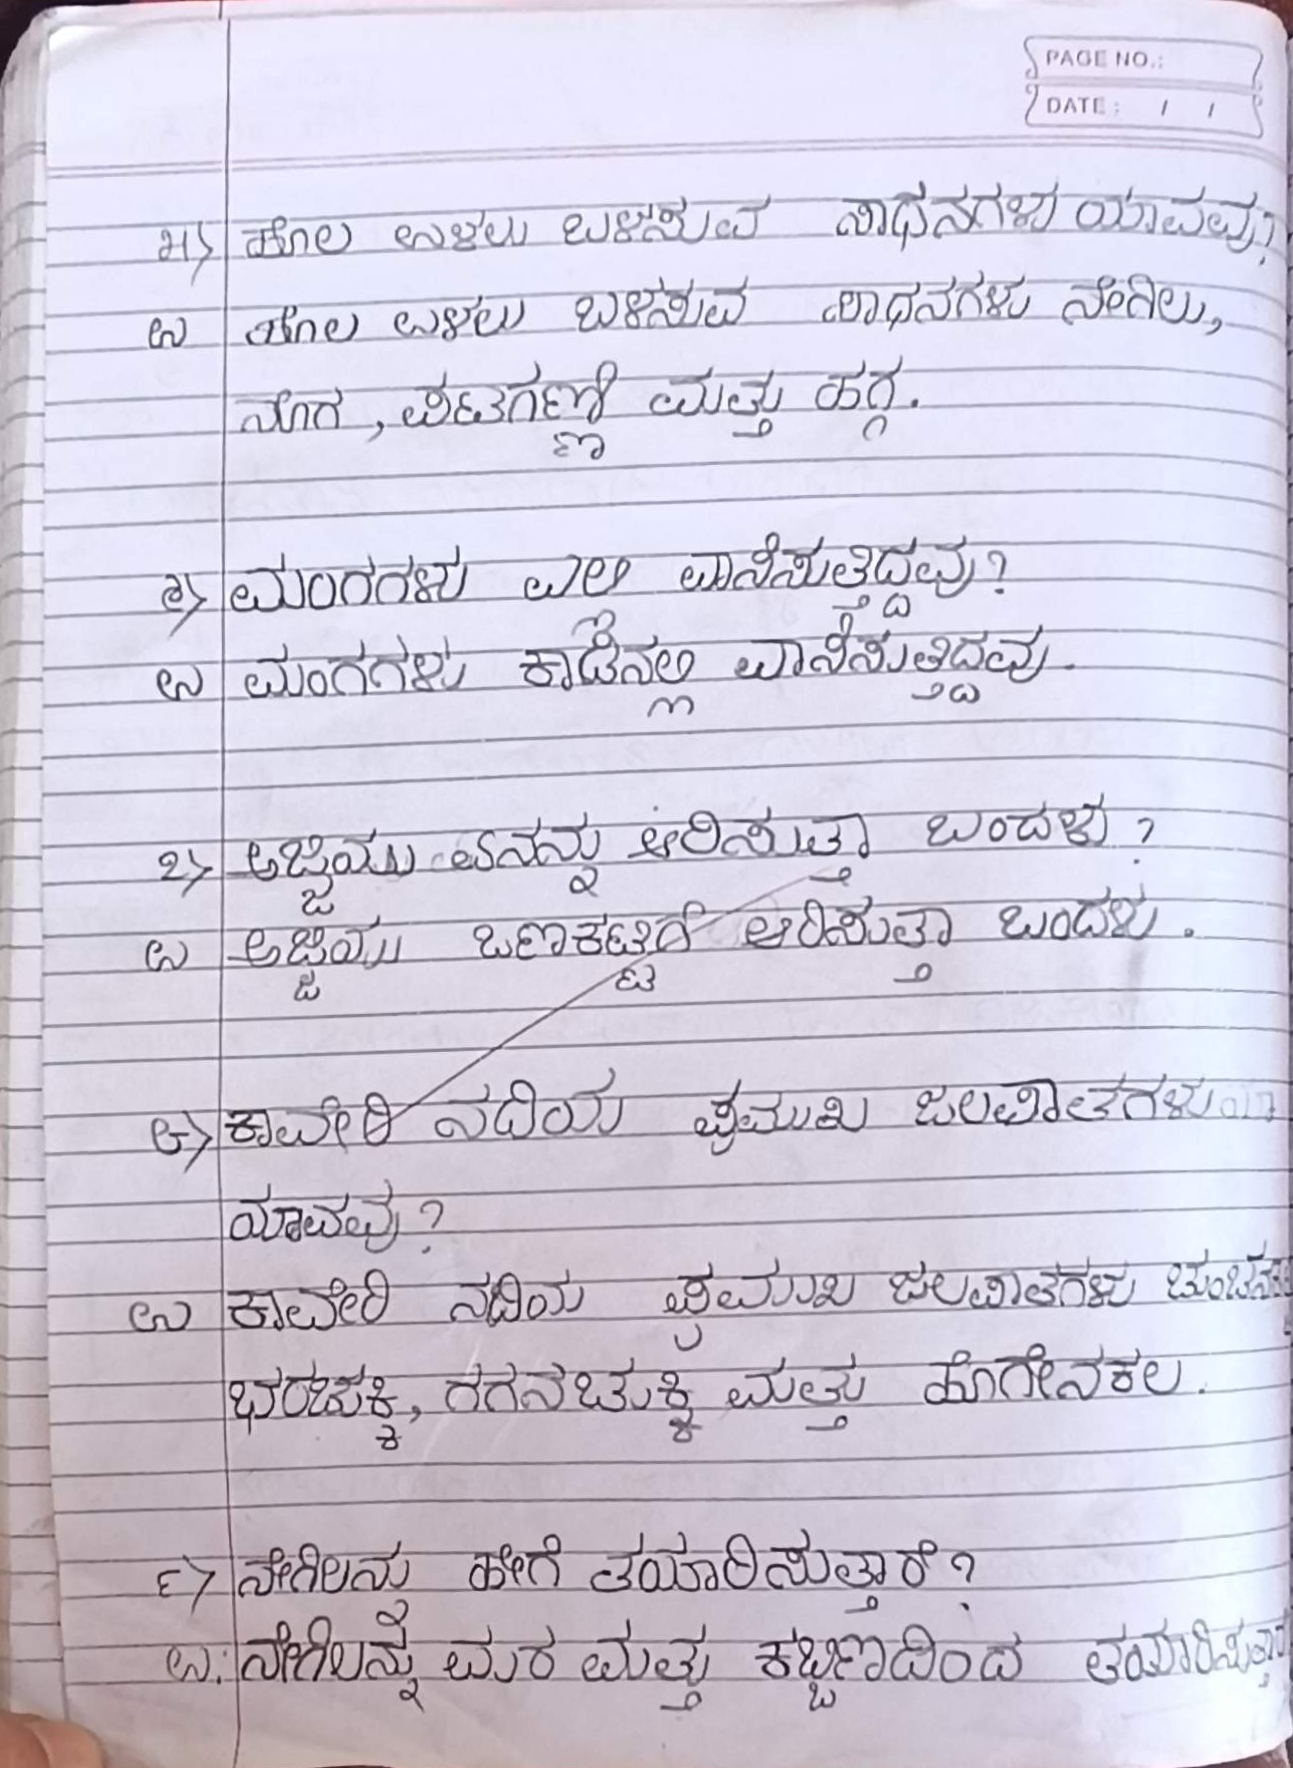 PAGE NO.:
DATE: / /
೫) ಹೊಲ ಉಳಲು ಬಳಸುವ ಸಾಧನಗಳು ಯಾವುವು?
ಉ ಹೊಲ ಉಳಲು ಬಳಸುವ ಸಾಧನಗಳು ನೇಗಿಲು,
ನೊಗ, ಪಟಗಣ್ಣಿ ಮತ್ತು ಹಗ್ಗ.
೬) ಮಂಗಗಳು ಎಲಿ ವಾಸಿಸುತ್ತಿದ್ದವು?
ಉ ಮಂಗಗಳು ಕಾಡಿನಲ್ಲಿ ವಾಸಿಸುತ್ತಿದ್ದವು.
೭) ಅಜ್ಜಿಯು ಏನನ್ನು ಆರಿಸುತ್ತಾ ಬಂದಳು?
ಉ ಅಜ್ಜಿಯು ಒಣಕಟ್ಟಿಗೆ ಆರಿಸುತ್ತಾ ಬಂದಳು.
೮) ಕಾವೇರಿ ನದಿಯ ಪ್ರಮುಖ ಜಲಪಾತಗಳು
ಯಾವವು?
ಉ ಕಾವೇರಿ ನದಿಯ ಪ್ರಮುಖ ಜಲಪಾತಗಳು
ಭರಚುಕ್ಕಿ, ಗಗನಚುಕ್ಕಿ ಮತ್ತು ಹೊಗೇನಕಲ.
೯) ನೇಗಿಲನು ಹೇಗೆ ತಯಾರಿಸುತ್ತಾರೆ?
ಉ. ನೇಗಿಲನ್ನು ಮರ ಮತ್ತು ಕಬ್ಬಣದಿಂದ